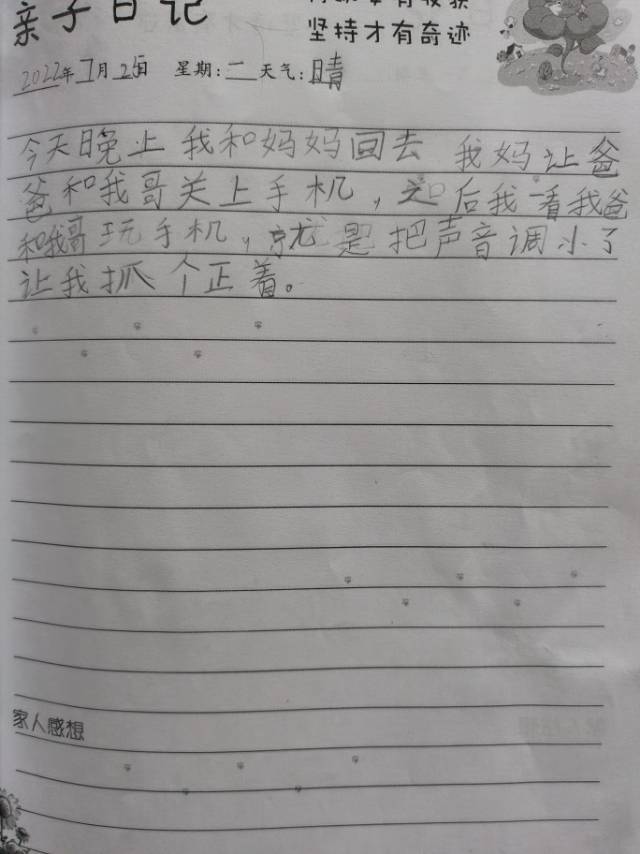 亲子日记
坚持才有奇迹
2022年7月25日 星期:二 天气:晴
今天晚上 我和妈妈回去 我妈让爸
爸和我哥关上手机，之后我一看我爸
和我哥玩手机，就是把声音调小了
让我抓个正着。
家人感想